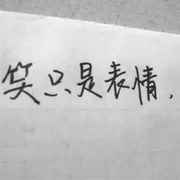 笑只是表情,